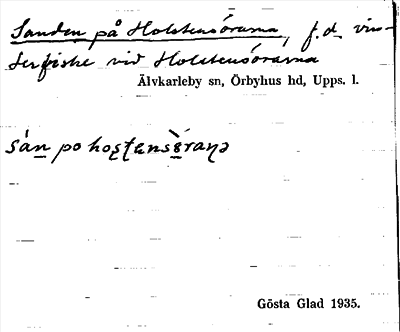 Sanden på Holstensörarna, f.d. vin-
terfiske vid Holstensörarna
Älvkarleby sn, Örbyhus hd, Upps. l.
sán po
Gösta Glad 1935.